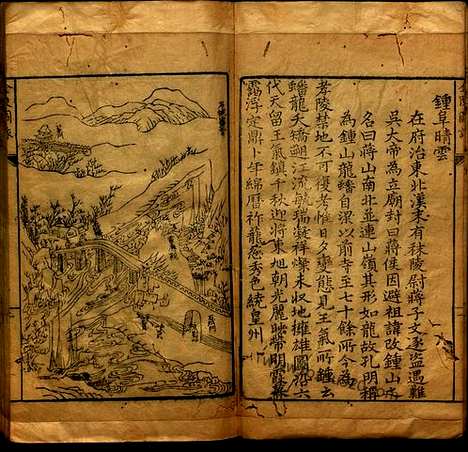 鍾阜晴雲
在府治東北漢末有秣陵尉蔣子文逐盜遇難
吳大帝為立廟封曰蔣侯因避祖諱改鍾山
名曰蔣山南北並連山嶺其形如龍故孔明稱
為鍾山龍蟠自梁以前寺至七十餘所今為
孝陵禁地不可復考惟日夕變態見王氣所鍾云
蟠龍夭矯遡江流毓瑞凝祥燦未收地擁雄圖沿六
代天留王氣鎮千秋迎將東旭朝光麗映帶明霞
靄浮定鼎卜年綿曆祚龍蔥秀色統皇州